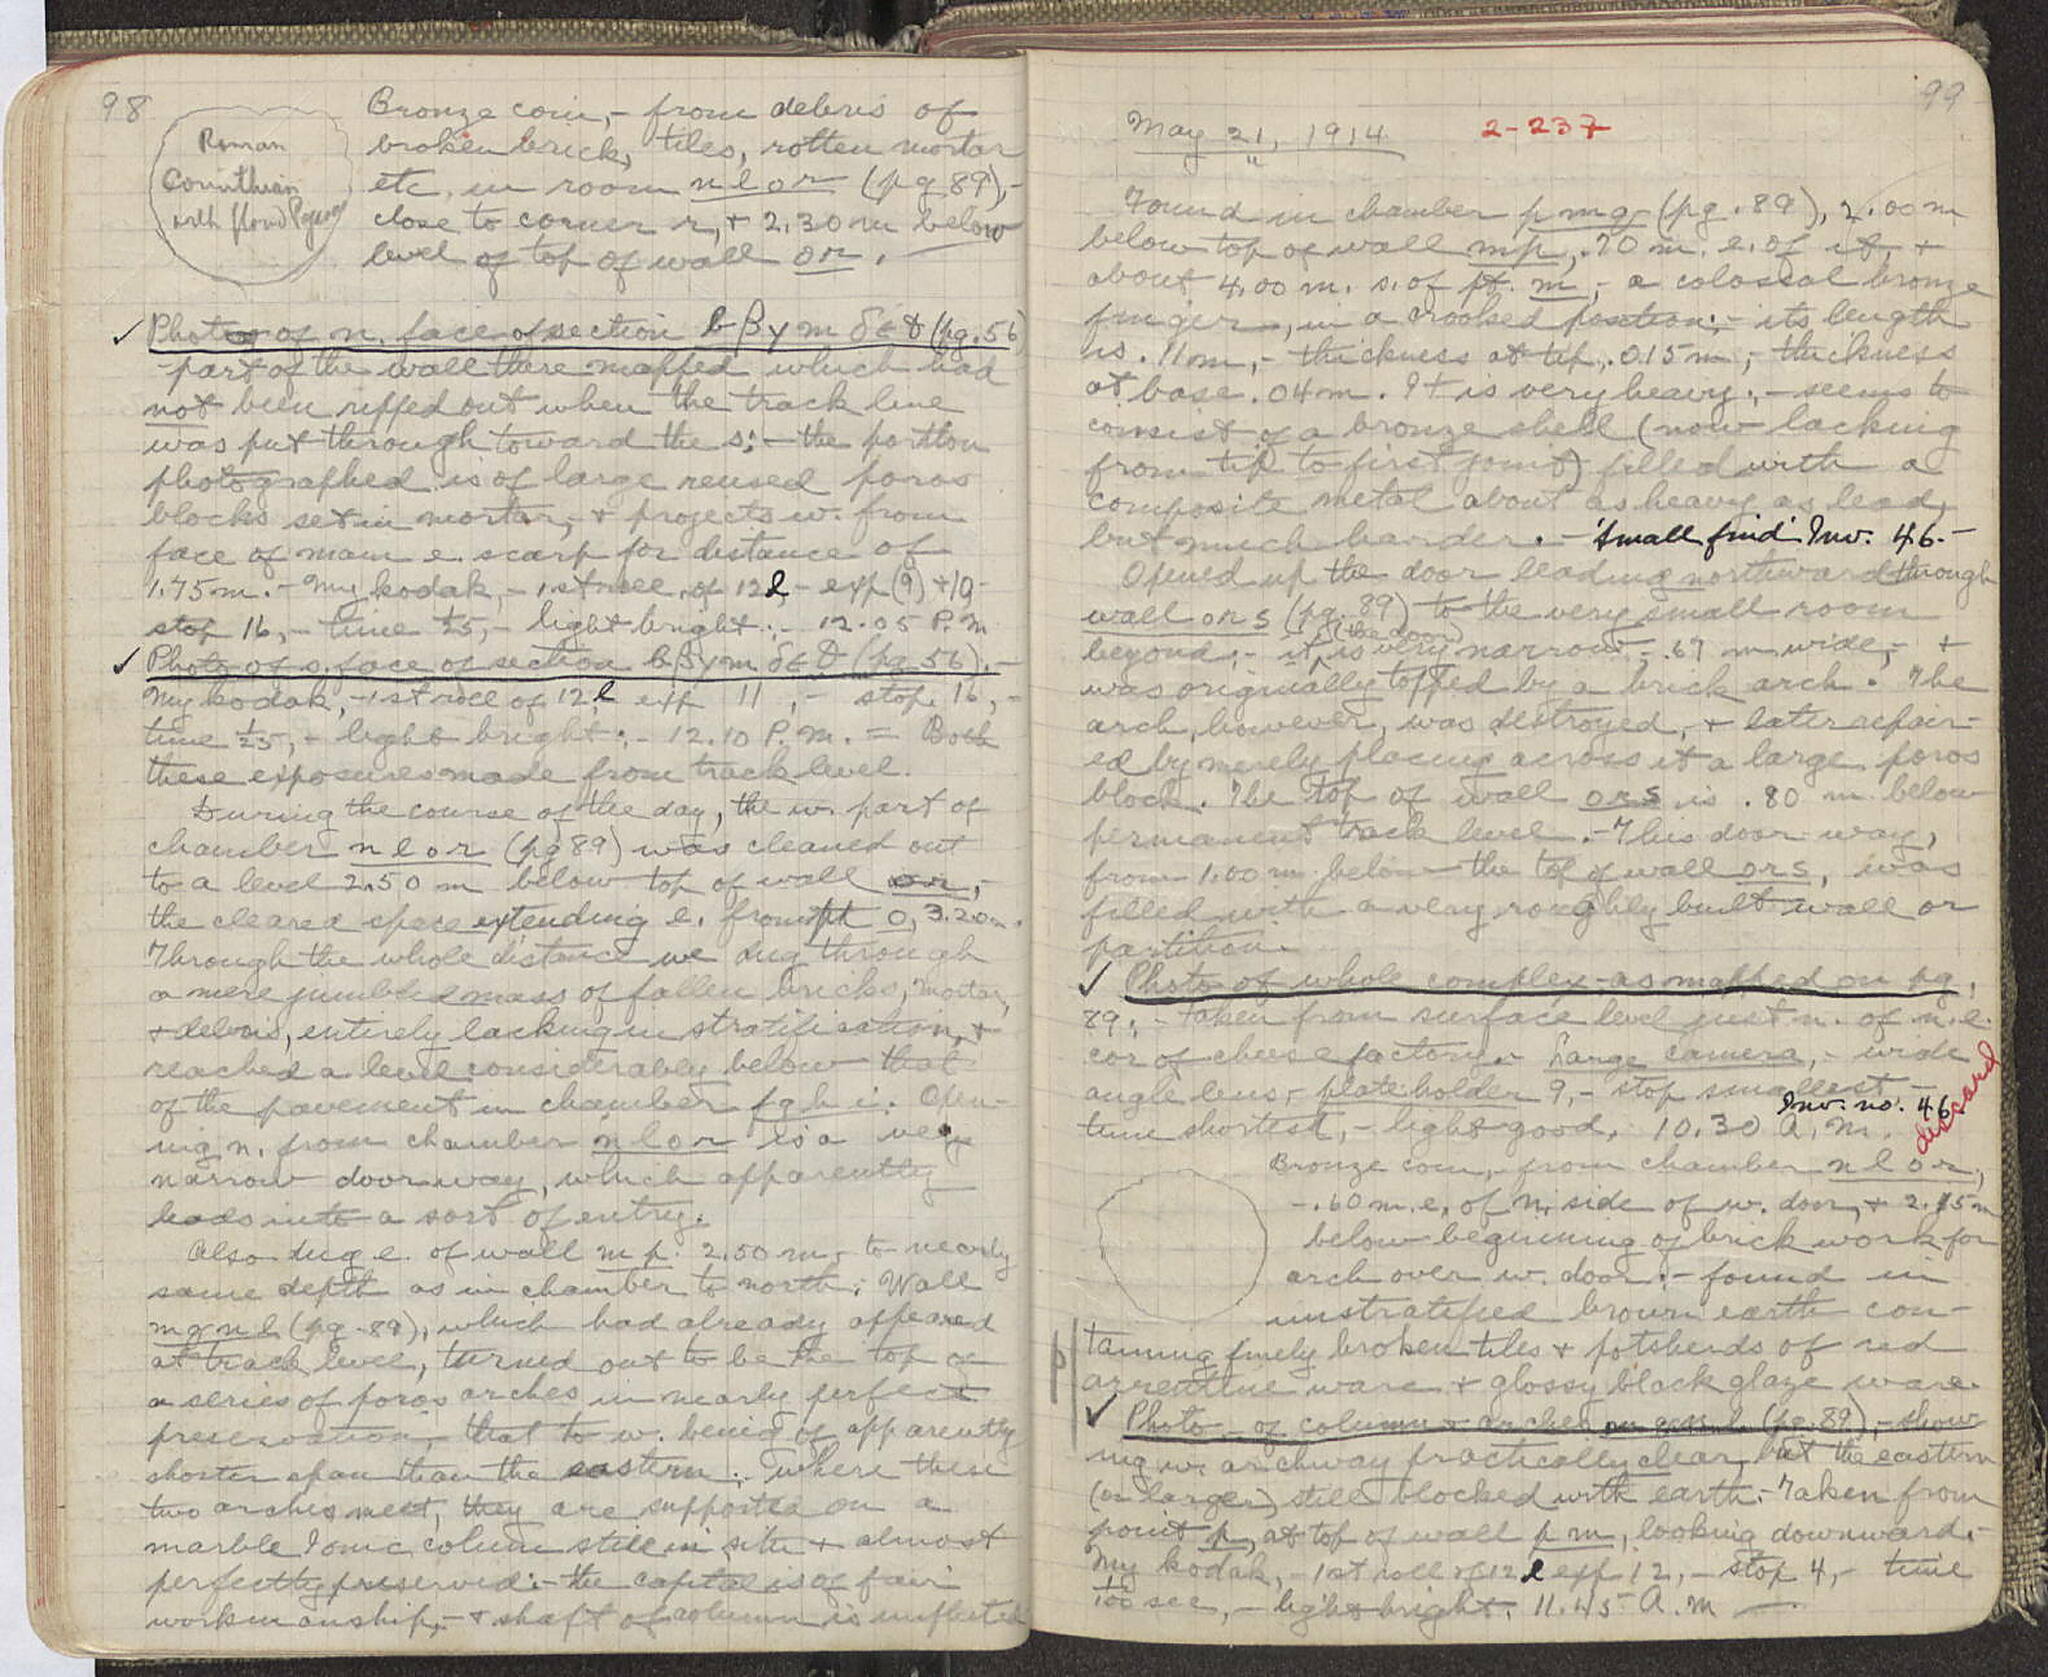 98
Roman
Corinthian
with flond Pegasus
Bronze coin, - from debris of
broken brick, tiles, rotten mortar
etc. in room n l o r (pg 89), -
close to corner r, + 2.30 m below
level of top of wall or. -
✓ Photo of n. face of section b β γ m δ ε θ (pg. 56)
- part of the wall there mapped which had
not been ripped out when the track line
was put through toward the s; - the portion
photographed is of large reused poros
blocks set in mortar, - + projects w. from
face of main e. scarp for distance of
1.75 m. - My kodak, - 1st roll of 12 l, - exp (9) + 10 -
stop 16, - time 1/25, - light bright; - 12.05 P.M
✓ Photo of s. face of section b β γ m δ ε θ (pg 56). -
My kodak, - 1st roll of 12 l exp 11, - stop 16, -
time 1/25, - light bright; - 12.10 P.M. = Both
these exposures made from track level.
During the course of the day, the w. part of
chamber n l o r (pg 89) was cleaned out
to a level 2.50 m below top of wall or, -
the cleared space extending e. from pt o, 3.20 m.
Through the whole distance we dug through
a mere jumbled mass of fallen bricks, mortar,
+ debris, entirely lacking in stratification, +
reached a level considerably below that
of the pavement in chamber f g h i. Open-
ing n. from chamber n l o r is a very
narrow doorway, which apparently
leads into a sort of entry.
Also dug e. of wall m p. 2.50 m, - to nearly
same depth as in chamber to north: Wall
m g n l (pg. 89), which had already appeared
at track level, turned out to be the top of
a series of poros arches in nearly perfect
preservation, - that to w. being of apparently
shorter span than the eastern: where these
two arches meet, they are supported on a
marble Ionic column still in situ + almost
perfectly preserved: - the capital is of fair
workmanship, - + shaft of column is unfluted
99
May 21, 1914 2-237
Found in chamber p m g (pg. 89), 2.00 m
below top of wall mp, .70 m. e. of it, +
about 4.00 m. s. of pt. m, - a colossal bronze
finger, in a crooked position; - its length
is .11 m, - thickness at tip .015 m, - thickness
at base .04 m. It is very heavy; - seems to
consist of a bronze shell (now lacking
from tip to first joint) filled with a
composite metal about as heavy as lead,
but much harder. - 'Small find' Inv. 46. -
Opened up the door leading northward through
wall ors (pg. 89) to the very small room
beyond; - it (the door) is very narrow, - .67 m wide, - +
was originally topped by a brick arch. The
arch, however, was destroyed, + later repair-
ed by merely placing across it a large poros
block. The top of wall ors is .80 m below
permanent track level. - This door way,
from 1.00 m. below the top of wall ors, was
filled with a very roughly built wall or
partition.
✓ Photo of whole complex as mapped on pg.
89; - taken from surface level just n. of n.e.
cor of cheese factory. - Large camera, - wide
angle lens, - plate holder 9, - stop smallest -
time shortest, - light good, 10.30 A.M.
Inv. no. 46
discard
Bronze coin, - from chamber n l o r,
- .60 m. e. of n. side of w. door, + 2.15 m
below beginning of brick work for
arch over w. door; - found in
unstratified brown earth con-
taining finely broken tiles + potsherds of red
arrentine ware + glossy black glaze ware.
✓ Photo - of column + arches m g n l (pg. 89), - show-
ing w. archway practically clear, but the eastern
(or larger) still blocked with earth. - Taken from
point p, at top of wall p m, looking downward. -
My kodak, - 1st roll of 12 l exp 12, - stop 4, - time
1/100 sec, - light bright. 11.45 A.M -